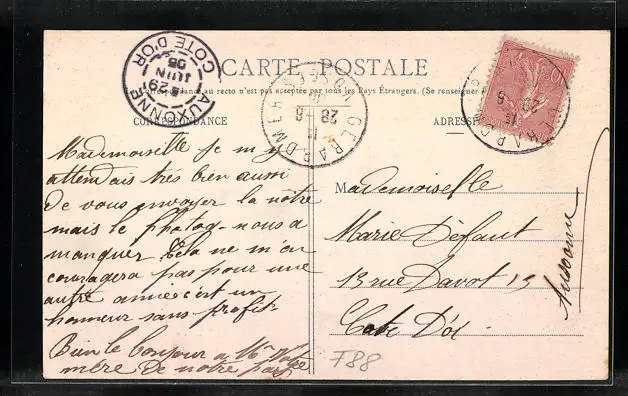 CARTE POSTALE
(La Correspondance au recto n'est pas acceptée par tous les Pays Étrangers. (Se renseigner
CORRESPONDANCE
ADRESS
AUXONNE
COTE D'OR
29
JUIN
05
GERARDMER
28 6
Mademoiselle je m'y
attendais très bien aussi
de vous envoyer la nôtre
mais le photog- nous a
manquer Cela ne m'en
couragera pas pour une
autre année c'est un
honneur sans profit
Bien le bonjour a Me Votre
mère De notre part
Mademoiselle
Marie Défaut
13 rue Davot 13
Auxonne
Cote D'or
788